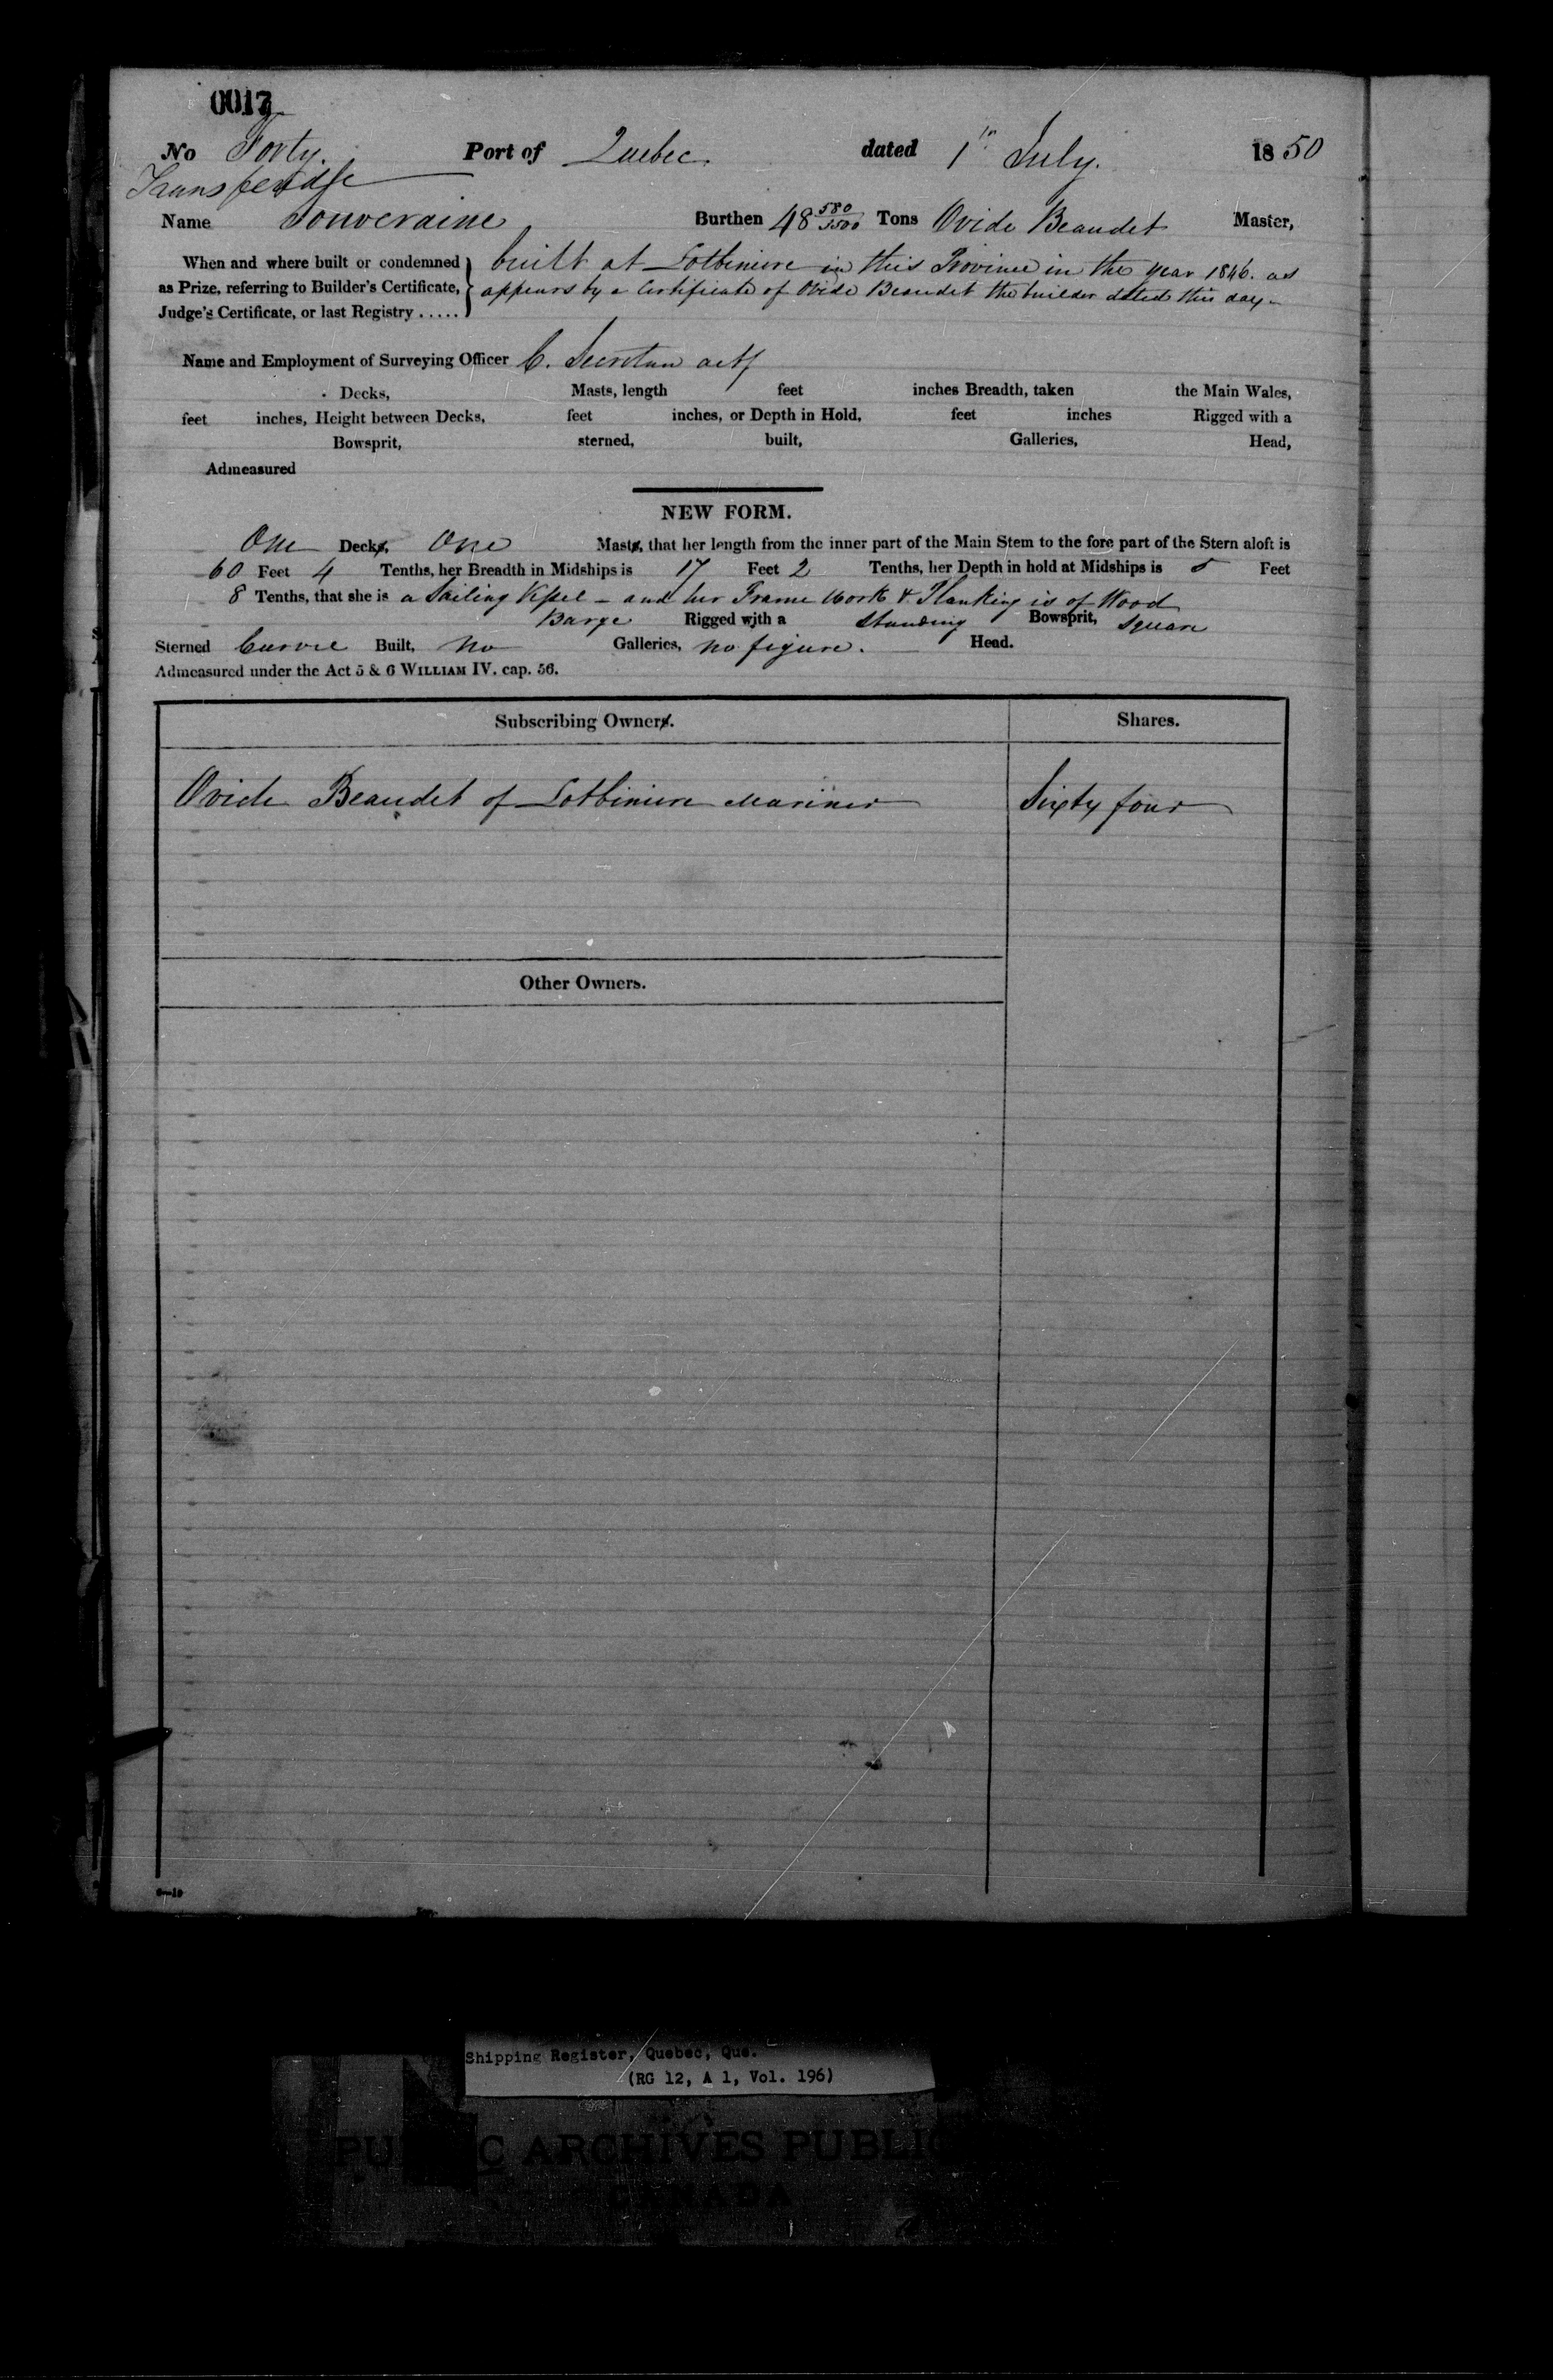 0017
No Forty. Port of Quebec. dated 1st July. 1850
Name Souveraine Burthen 48 580/3500 Tons Ovide Beaudet Master,
When and where built or condemned as Prize, referring to Builder's Certificate, Judge's Certificate, or last Registry .....
built at Lotbiniere in this Province in the year 1846. as
appears by a Certificate of Ovide Beaudet the builder dated this day -
Name and Employment of Surveying Officer C. Secretan
Decks, Masts, length feet inches Breadth, taken the Main Wales,
feet inches, Height between Decks, feet inches, or Depth in Hold, feet inches Rigged with a
Bowsprit, sterned, built, Galleries, Head,
Admeasured
NEW FORM.
One Decks, One Masts, that her length from the inner part of the Main Stem to the fore part of the Stern aloft is
60 Feet 4 Tenths, her Breadth in Midships is 17 Feet 2 Tenths, her Depth in hold at Midships is 5 Feet
8 Tenths, that she is a Sailing Vessel - and her Frame Work & Planking is of Wood
Barge Rigged with a standing Bowsprit, square
Sterned Carvel Built, no Galleries, no figure. Head.
Admeasured under the Act 5 & 6 WILLIAM IV. cap. 56.
Subscribing Owners. Shares.
Ovide Beaudet of Lotbiniere Mariner Sixty four
Other Owners.
6—19
Shipping Register, Quebec, Que.
(RG 12, A 1, Vol. 196)
ARCHIVES